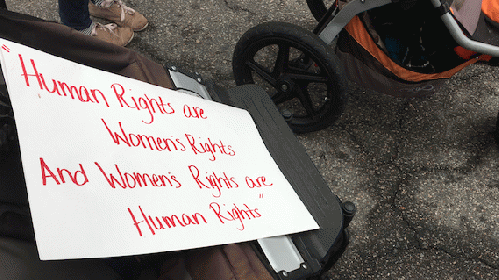 "Human Rights are
Women's Rights
And Women's Rights are
Human Rights"